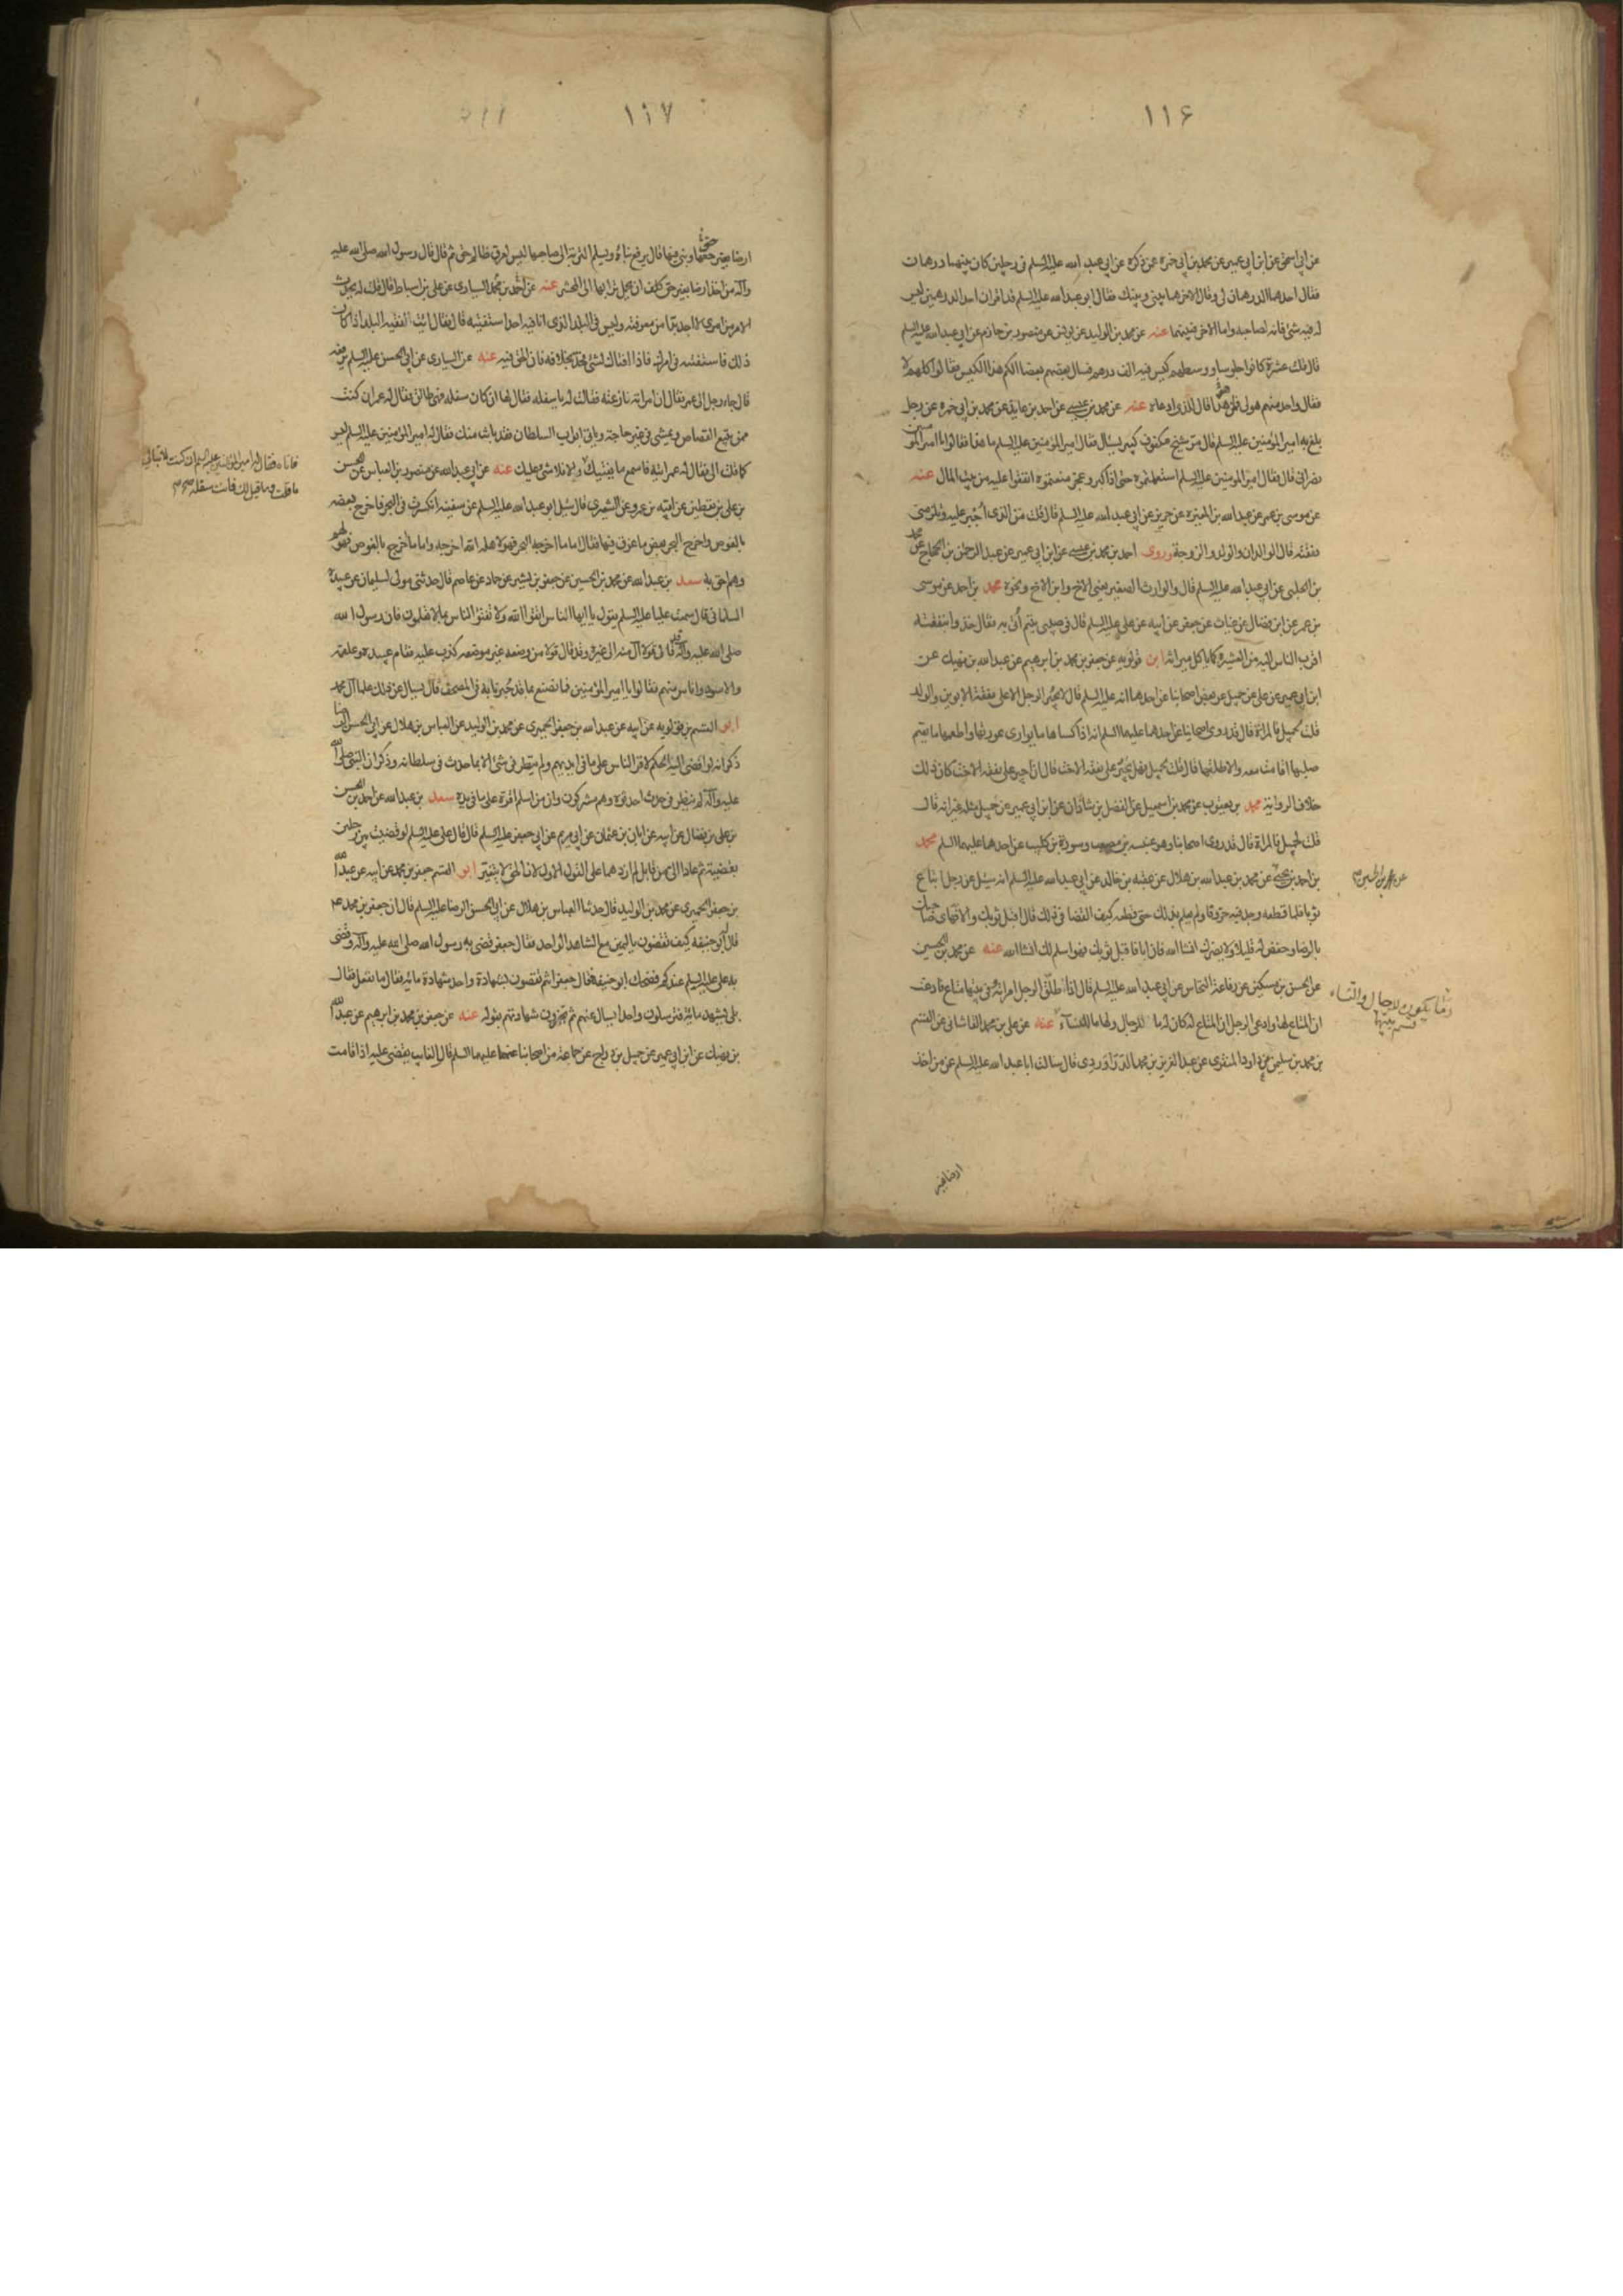 ١١۶
عن ابى اسحق عن ابن ابى عمير عن محمد بن ابى حمزه عن ذكره عن ابى عبد الله عليه السلم فى رجلين كان بينهما درهمان
فقال احدهما الدرهمان لى وقال الاخر هما بينى وبينك فقال ابو عبد الله عليه السلم قد اقر ان احد الدرهمين ليس
له فيه شئ فانه لصاحبه واما الاخر فبينهما عنه عن محمد بن الوليد عن يونس عن منصور بن حازم عن ابى عبد الله عليه السلم
قال قلت عشرة كانوا جلوسا ووسطهم كيس فيه الف درهم فسال بعضهم بعضا الكم هذا الكيس فقالوا كلهم لا
فقال واحد منهم هو لى فلمن هو قال للذى ادعاه عنه عن محمد بن عيسى عن احمد بن عايذ عن محمد بن ابى حمزه عن رجل
بلغ به امير المؤمنين عليه السلم قال مر شيخ مكفوف كبير يسال فقال امير المؤمنين عليه السلم ما هذا فقالوا يا امير المؤمنين
نصرانى قال فقال امير المومنين عليه السلم استعملتموه حتى اذا كبر وعجز منعتموه انفقوا عليه من بيت المال عنه
عن موسى بن عمر عن عبد الله بن المغيره عن حريز عن ابى عبد الله عليه السلم قال قلت من الذى اجبر عليه وتلزمنى
نفقته قال الوالدان والولد والزوجة وروى احمد بن محمد بن عيسى عن ابن ابى عمير عن عبد الرحمن بن الحجاج عن محمد
بن الحلبى عن ابى عبد الله عليه السلم قال والوارث الصغير يعنى الاخ وابن الاخ ونحوه محمد بن احمد عن موسى
بن عمر عن ابن فضال عن غياث عن جعفر عن ابيه عن على عليه السلم قال فى صبى يتيم اتى به فقال خذوا بنفقته
اقرب الناس اليه من العشيرة كما ياكل ميراثه ابن قولويه عن جعفر بن محمد بن ابرهيم عن عبد الله بن نهيك عن
ابن ابى عمير عن على عن جميل عن بعض اصحابنا عن احدهما انه عليه السلم قال لا يجبر الرجل الا على نفقة الابوين والولد
قلت لجميل فالمراة قال قد روى اصحابنا عن احدهما عليهما السلم انه اذا كساها ما يوارى عورتها واطعمها ما يقيم
صلبها اقامت معه والا طلقها قال قلت لجميل فهل يجبر على نفقة الاخت قال ان اجبر على نفقة الاخت كان ذلك
خلاف الرواية محمد بن يعقوب عن محمد بن اسمعيل عن الفضل بن شاذان عن ابن ابى عمير عن جميل مثله غير انه قال
قلت لجميل فالمراة قال قد روى اصحابنا وهو عنبسه بن مصعب وسورة بن كليب عن احدهما عليهما السلم محمد
بن احمد بن يحيى عن محمد بن عبد الله بن هلال عن عقبه بن خالد عن ابى عبد الله عليه السلم انه سئل عن رجل ابتاع
ثوبا فلما قطعه وجد فيه حزوقا ولم يعلم بذلك حتى قطعه كيف القضا فى ذلك قال اقبل ثوبك والا فهاى صاحبك
بالرضا وخفض له قليلا ولا يضرك انشا الله فان ابا فاقبل ثوبك فهو اسلم لك انشا الله عنه عن محمد بن الحسين
عن الحسن بن مسكين عن رفاعة النخاس عن ابى عبد الله عليه السلم قال اذا طلق الرجل امراته وفى بيتها متاع فادعت
ان المتاع لها وادعى الرجل ان المتاع له كان له ما للرجال ولها ما للنساء عنه عن على بن محمد القاشانى عن القسم
بن محمد بن سليمن عن داود المنقرى عن عبد العزيز بن محمد الدراوردى قال سالت ابا عبد الله عليه السلم عن من اخذ
عن محمد بن الحسين
وما يكون للرجال والنساء
قسم بينهما
ارضا بغير
١١٧
ارضا بغير حقها وبنى فيها قال يرفع بناؤه ويسلم التربة الى صاحبها ليس لعرق ظالم حق ثم قال قال رسول الله صلى الله عليه
وآله من اخذ ارضا بغير حق كلف ان يحمل ترابها الى المحشر عنه عن احمد بن محمد السيارى عن على بن اسباط قال قلت له يحدث
الامر من امرى لا اجد بدا من معرفته وليس فى البلد الذى انا فيه احد استفتيه قال فقال ايت الفقيه البلد اذا كان
ذلك فاستفته فى امرك فاذا افتاك بشئ فخذ بخلافه فان الحق فيه عنه عن السيارى عن ابى الحسن عليه السلم يرفعه
قال جاء رجل الى عمر فقال ان امراته نازعته فقالت له يا سفله فقال لها ان كان سفله فهى طالق فقال له عمر ان كنت
ممن يتبع القصاص ويمشى فى غير حاجة وياتى ابواب السلطان فقد بانت منك فقال له امير المؤمنين عليه السلم ليس
كما قلت الى فقال له عمر ايته فاسمع ما يفتيك والا فلا شئ عليك عنه عن ابى عبد الله عن منصور بن العباس عن الحسن
بن على بن يقطين عن ابيه عن عمرو عن الشعيرى قال سئل ابو عبد الله عليه السلم عن سفينه انكسرت فى البحر فاخرج بعضه
بالغوص واخرج البحر بعض ما غرق فيها فقال اما ما اخرجه البحر فهو لاهله الله اخرجه واما ما اخرج بالغوص فهو لهم
وهم احق به سعد بن عبد الله عن محمد بن الحسين عن جعفر بن بشير عن حماد عن عاصم قال حدثنى مولى لسليمان عن عبيدة
السلمانى قال سمعت عليا عليه السلم يقول يا ايها الناس اتقوا الله ولا تفتوا الناس بما لا تعلمون فان رسول الله
صلى الله عليه وآله قد قال قولا آل منه الى غيره وقد قال قولا من وضعه غير موضعه كذب عليه فقام عبيده وعلقمه
والاسود واناس منهم فقالوا يا امير المؤمنين فما نصنع بما قد خبرنا به فى المصحف قال يسال عن ذلك علما آل محمد
ابو القسم بن قولويه عن ابيه عن عبد الله بن جعفر الحميرى عن محمد بن الوليد عن العباس بن هلال عن ابى الحسن الرضا
ذكر انه لو افضى اليه الحكم لاقر الناس على ما فى ايديهم ولم ينظر فى شئ الا بما حدث فى سلطانه وذكر ان النبى صلى الله
عليه وآله لم ينظر فى حدث احدثوه وهم مشركون وان من اسلم اقره على ما فى يده سعد بن عبد الله عن احمد بن الحسن
بن على بن فضال عن ابيه عن ابان بن عثمان عن ابى مريم عن ابى جعفر عليه السلم قال قال على عليه السلم لو قضيت بين رجلين
بقضية ثم عادا الى من قابل لم ازدهما على القول الاول لان الحق لا يتغير ابو القسم جعفر بن محمد عن ابيه عن عبد الله
بن جعفر الحميرى عن محمد بن الوليد قال حدثنا العباس بن هلال عن ابى الحسن الرضا عليه السلم قال ان جعفر بن محمد ع
قال له ابو حنيفه كيف تقضون باليمين مع الشاهد الواحد فقال جعفر قضى به رسول الله صلى الله عليه وآله وقضى
به على عليه السلم عندكم فضحك ابو حنيفه فقال جعفر انتم تقضون بشهادة واحد شهادة مائه فقال ما نفعل فقال
بلى يشهد مائة فترسلون واحدا يسال عنهم ثم تجيزون شهادتهم بقوله عنه عن جعفر بن محمد بن ابرهيم عن عبد الله
بن نهيك عن ابن ابى عمير عن جميل بن دراج عن جماعة من اصحابنا عنهما عليهما السلم قال الغايب يقضى عليه اذا قامت
فاتاه فقال له امير المؤمنين عليه السلم ان كنت لا تبالى
ما قلت وما قيل لك فانت سفله صح